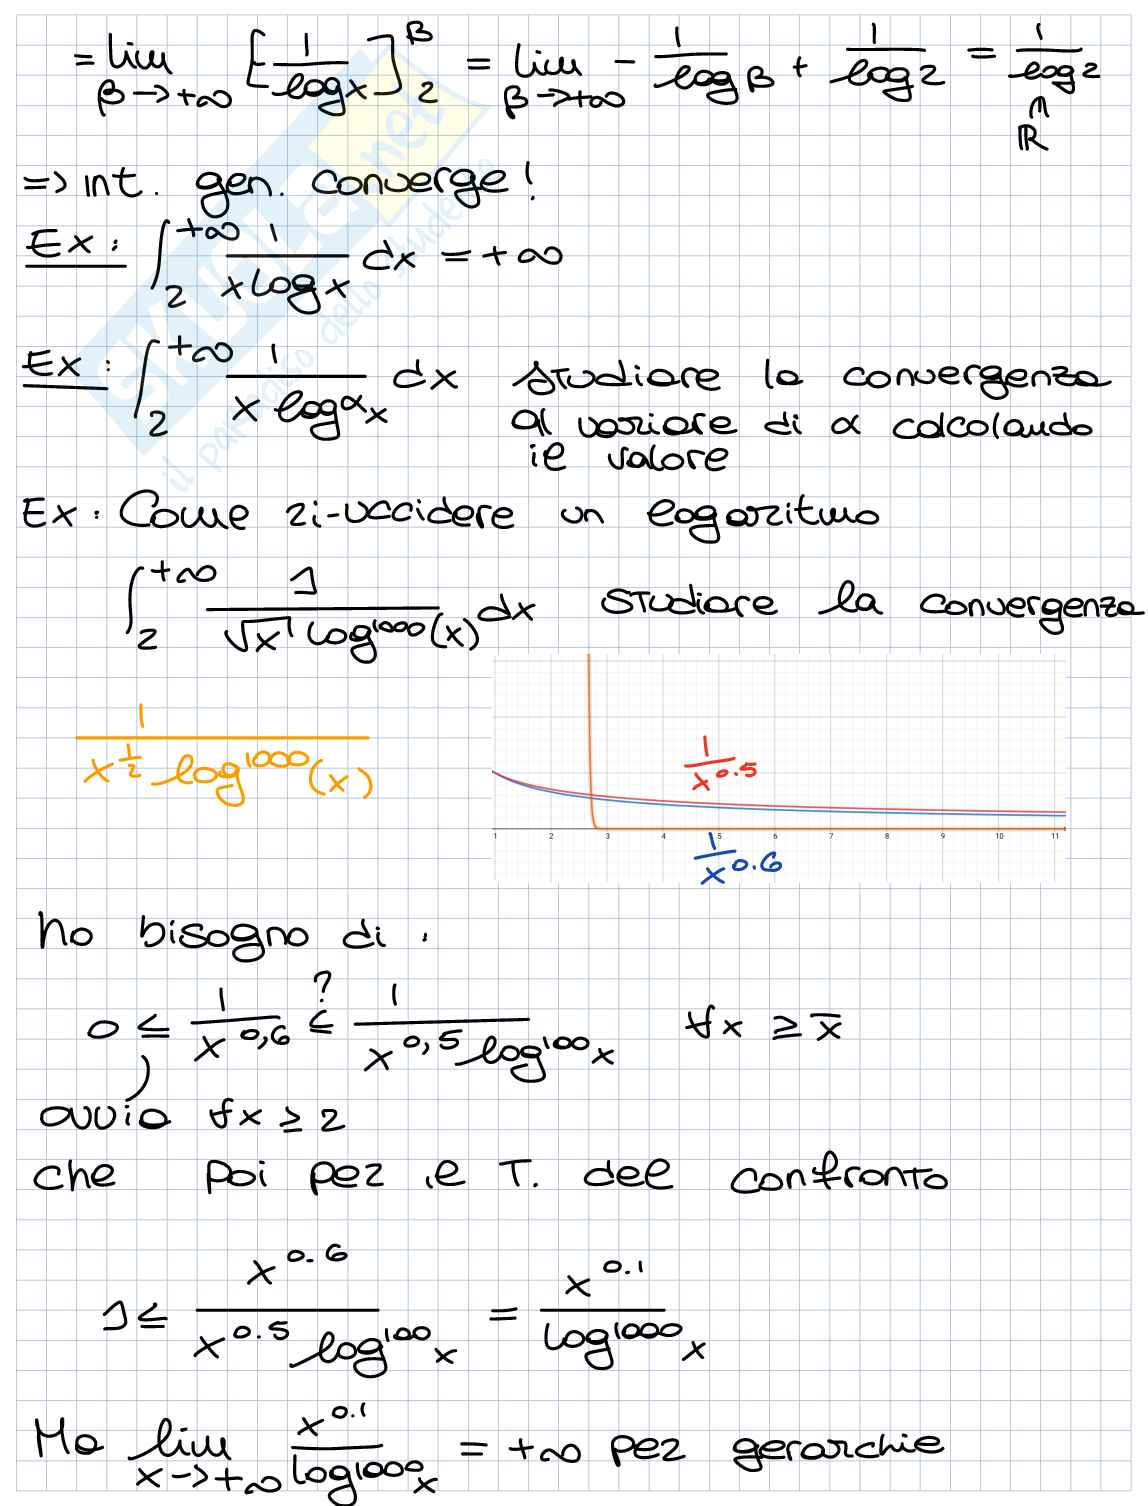 = lim β→+∞ [1/log x]₂^β = lim β→+∞ - 1/log β + 1/log 2 = 1/log 2
∩
ℝ
=> int. gen. converge!
Ex: ∫₂^+∞ 1/(x log x) dx = +∞
Ex: ∫₂^+∞ 1/(x log^α x) dx studiare la convergenza
al variare di α calcolando
il valore
Ex: Come ri-uccidere un logaritmo
∫₂^+∞ 1/(√x log^1000(x)) dx studiare la convergenza
1/(x^(1/2) log^1000(x))
1/x^0.5
1 2 3 4 5 6 7 8 9 10 11
1/x^0.6
ho bisogno di:
0 ≤ 1/x^0,6 ≤? 1/(x^0,5 log^100 x) ∀x ≥ x̄
ovvio ∀x ≥ 2
che poi per il T. del confronto
1 ≤ x^0.6/(x^0.5 log^100 x) = x^0.1/log^1000 x
Ma lim x→+∞ x^0.1/log^1000 x = +∞ per gerarchie
SKUOLA.net
il paradiso dello studente